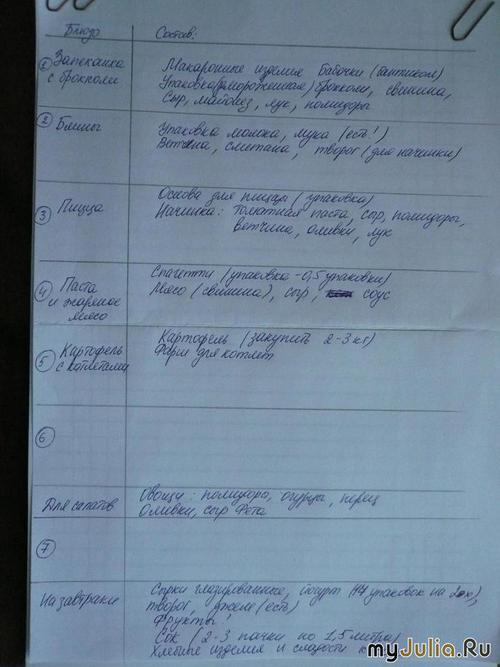 Блюдо Состав:
① Запеканка с брокколи
Макаронные изделия Бабочки (бантиком)
Упаковка (замороженная) брокколи, свинина,
Сыр, майонез, лук, помидоры
② Блины
Упаковка молока, мука (есть!)
Ветчина, сметана, творог (для начинки)
③ Пицца
Основа для пиццы (упаковка)
Начинка: Томатная паста, сыр, помидоры,
ветчина, оливки, лук
④ Паста и жареное мясо
Спагетти (упаковка - 0,5 упаковки)
Мясо (свинина), сыр, соус
⑤ Картофель с котлетами
Картофель (закупить 2-3 кг)
Фарш для котлет
⑥
Для салатов
Овощи: помидоры, огурцы, перец
Оливки, сыр Фета
⑦
На завтраки
Сырки глазированные, йогурт (14 упаковок на 2ох),
творог, желе (есть)
Фрукты!
Сок (2-3 пачки по 1,5 литра)
Хлебные изделия и сладости к
myJulia.Ru